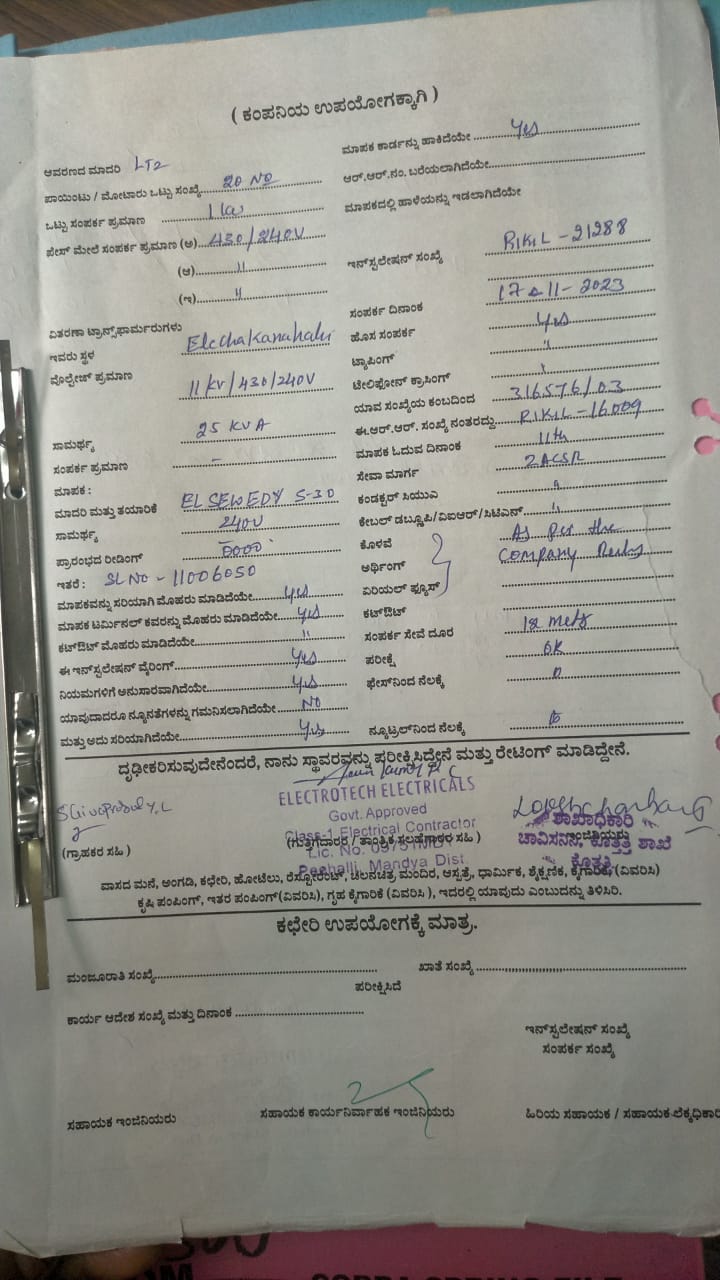 ( ಕಂಪನಿಯ ಉಪಯೋಗಕ್ಕಾಗಿ )
ಆವರಣದ ಮಾದರಿ LT2
ಪಾಯಿಂಟು / ಮೋಟಾರು ಒಟ್ಟು ಸಂಖ್ಯೆ 20 No
ಒಟ್ಟು ಸಂಪರ್ಕ ಪ್ರಮಾಣ 1 kw
ಫೇಸ್ ಮೇಲೆ ಸಂಪರ್ಕ ಪ್ರಮಾಣ (ಅ) 430/240V
(ಆ) "
(ಇ) "
ವಿತರಣಾ ಟ್ರಾನ್ಸ್‌ಫಾರ್ಮರುಗಳು
ಇವರು ಸ್ಥಳ Elechakanahalli
ವೋಲ್ಟೇಜ್ ಪ್ರಮಾಣ 11kv/430/240V
ಸಾಮರ್ಥ್ಯ 25 KVA
ಸಂಪರ್ಕ ಪ್ರಮಾಣ –
ಮಾಪಕ :
ಮಾದರಿ ಮತ್ತು ತಯಾರಿಕೆ EL SEWEDY 5-30
ಸಾಮರ್ಥ್ಯ 240V
ಪ್ರಾರಂಭದ ರೀಡಿಂಗ್ 0000
ಇತರೆ : SL No - 11006050
ಮಾಪಕವನ್ನು ಸರಿಯಾಗಿ ಮೊಹರು ಮಾಡಿದೆಯೇ Yes
ಮಾಪಕ ಟರ್ಮಿನಲ್ ಕವರನ್ನು ಮೊಹರು ಮಾಡಿದೆಯೇ Yes
ಕಟ್‌ಔಟ್ ಮೊಹರು ಮಾಡಿದೆಯೇ "
ಈ ಇನ್‌ಸ್ಟಲೇಷನ್ ವೈರಿಂಗ್ Yes
ನಿಯಮಗಳಿಗೆ ಅನುಸಾರವಾಗಿದೆಯೇ Yes
ಯಾವುದಾದರೂ ನ್ಯೂನತೆಗಳನ್ನು ಗಮನಿಸಲಾಗಿದೆಯೇ No
ಮತ್ತು ಅದು ಸರಿಯಾಗಿದೆಯೇ Yes
ಮಾಪಕ ಕಾರ್ಡನ್ನು ಹಾಕಿದೆಯೇ Yes
ಆರ್.ಆರ್.ನಂ. ಬರೆಯಲಾಗಿದೆಯೇ
ಮಾಪಕದಲ್ಲಿ ಹಾಳೆಯನ್ನು ಇಡಲಾಗಿದೆಯೇ
ಇನ್‌ಸ್ಟಲೇಷನ್ ಸಂಖ್ಯೆ RIKIL - 21288
ಸಂಪರ್ಕ ದಿನಾಂಕ 17-11-2023
ಹೊಸ ಸಂಪರ್ಕ Yes
ಟ್ಯಾಪಿಂಗ್ "
ಟೆಲಿಫೋನ್ ಕ್ರಾಸಿಂಗ್
ಯಾವ ಸಂಖ್ಯೆಯ ಕಂಬದಿಂದ 316576/03
ಈ.ಆರ್.ಆರ್. ಸಂಖ್ಯೆ ನಂತರದ್ದು RIKIL - 16009
ಮಾಪಕ ಓದುವ ದಿನಾಂಕ 11th
ಸೇವಾ ಮಾರ್ಗ 2ACSR
ಕಂಡಕ್ಟರ್ ಸಿಯುಎ "
ಕೇಬಲ್ ಡಬ್ಲೂಪಿ/ವಿಐಆರ್/ಸಿಟಿಎನ್ "
ಕೊಳವೆ As per the
ಅರ್ಥಿಂಗ್ Company
ಏರಿಯಲ್ ಫ್ಯೂಸ್
ಕಟ್‌ಔಟ್
ಸಂಪರ್ಕ ಸೇವೆ ದೂರ 12 mets
ಪರೀಕ್ಷೆ OK
ಫೇಸ್‌ನಿಂದ ನೆಲಕ್ಕೆ
ನ್ಯೂಟ್ರಲ್‌ನಿಂದ ನೆಲಕ್ಕೆ
ದೃಢೀಕರಿಸುವುದೇನೆಂದರೆ, ನಾನು ಸ್ಥಾವರವನ್ನು ಪರೀಕ್ಷಿಸಿದ್ದೇನೆ ಮತ್ತು ರೇಟಿಂಗ್ ಮಾಡಿದ್ದೇನೆ.
ELECTROTECH ELECTRICALS
Govt. Approved
Class-1 Electrical Contractor
Mandya Dist.
(ಗ್ರಾಹಕರ ಸಹಿ )
(ಗುತ್ತಿಗೆದಾರರ / ತಾಂತ್ರಿಕ ಸಹಿ )
ಶಾಖಾಧಿಕಾರಿ
ವಾಸದ ಮನೆ, ಅಂಗಡಿ, ಕಛೇರಿ, ಹೋಟೆಲು, ರೆಸ್ಟೋರೆಂಟ್, ಚಲನಚಿತ್ರ ಮಂದಿರ, ಆಸ್ಪತ್ರೆ, ಧಾರ್ಮಿಕ, ಶೈಕ್ಷಣಿಕ, ಕೈಗಾರಿಕೆ, (ವಿವರಿಸಿ)
ಕೃಷಿ ಪಂಪಿಂಗ್, ಇತರ ಪಂಪಿಂಗ್(ವಿವರಿಸಿ), ಗೃಹ ಕೈಗಾರಿಕೆ (ವಿವರಿಸಿ ), ಇದರಲ್ಲಿ ಯಾವುದು ಎಂಬುದನ್ನು ತಿಳಿಸಿರಿ.
ಕಛೇರಿ ಉಪಯೋಗಕ್ಕೆ ಮಾತ್ರ.
ಮಂಜೂರಾತಿ ಸಂಖ್ಯೆ ಖಾತೆ ಸಂಖ್ಯೆ
ಪರೀಕ್ಷಿಸಿದೆ
ಕಾರ್ಯ ಆದೇಶ ಸಂಖ್ಯೆ ಮತ್ತು ದಿನಾಂಕ
ಇನ್‌ಸ್ಟಲೇಷನ್ ಸಂಖ್ಯೆ
ಸಂಪರ್ಕ ಸಂಖ್ಯೆ
ಸಹಾಯಕ ಇಂಜಿನಿಯರು ಸಹಾಯಕ ಕಾರ್ಯನಿರ್ವಾಹಕ ಇಂಜಿನಿಯರು ಹಿರಿಯ ಸಹಾಯಕ / ಸಹಾಯಕ-ಲೆಕ್ಕಧಿಕಾರಿ